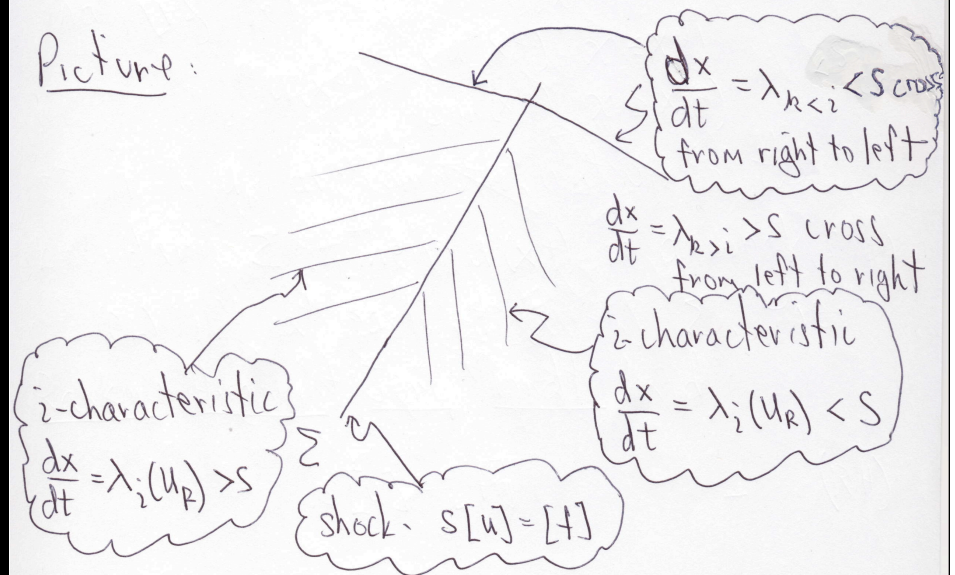 Picture:
dx/dt = λ_{k<i} < S cross
from right to left
dx/dt = λ_{k>i} > S cross
from left to right
i-characteristic
dx/dt = λ_i(U_R) < S
i-characteristic
dx/dt = λ_i(U_R) > S
Σ
shock. S[u]=[f]